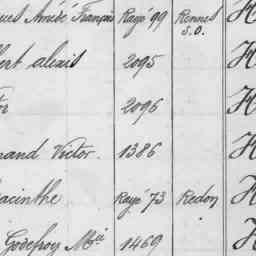 ues Amédé François Rayé 99 Rennes S.O. H
bert alexis 2095 H
tor 2096 H
mand Victor. 1386 H
yacinthe Rayé 73 Redon H
Godefroy Mie 1469 H